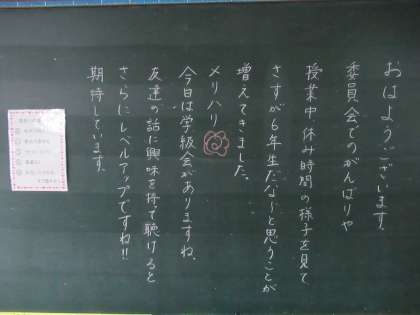 おはようございます。
委員会でのがんばりや
授業中、休み時間の様子を見て
さすが6年生だな〜と思うことが
増えてきました。
メリハリ
今日は学級会がありますね。
友達の話に興味を持て聴けると
さらにレベルアップですね!!
期待しています。